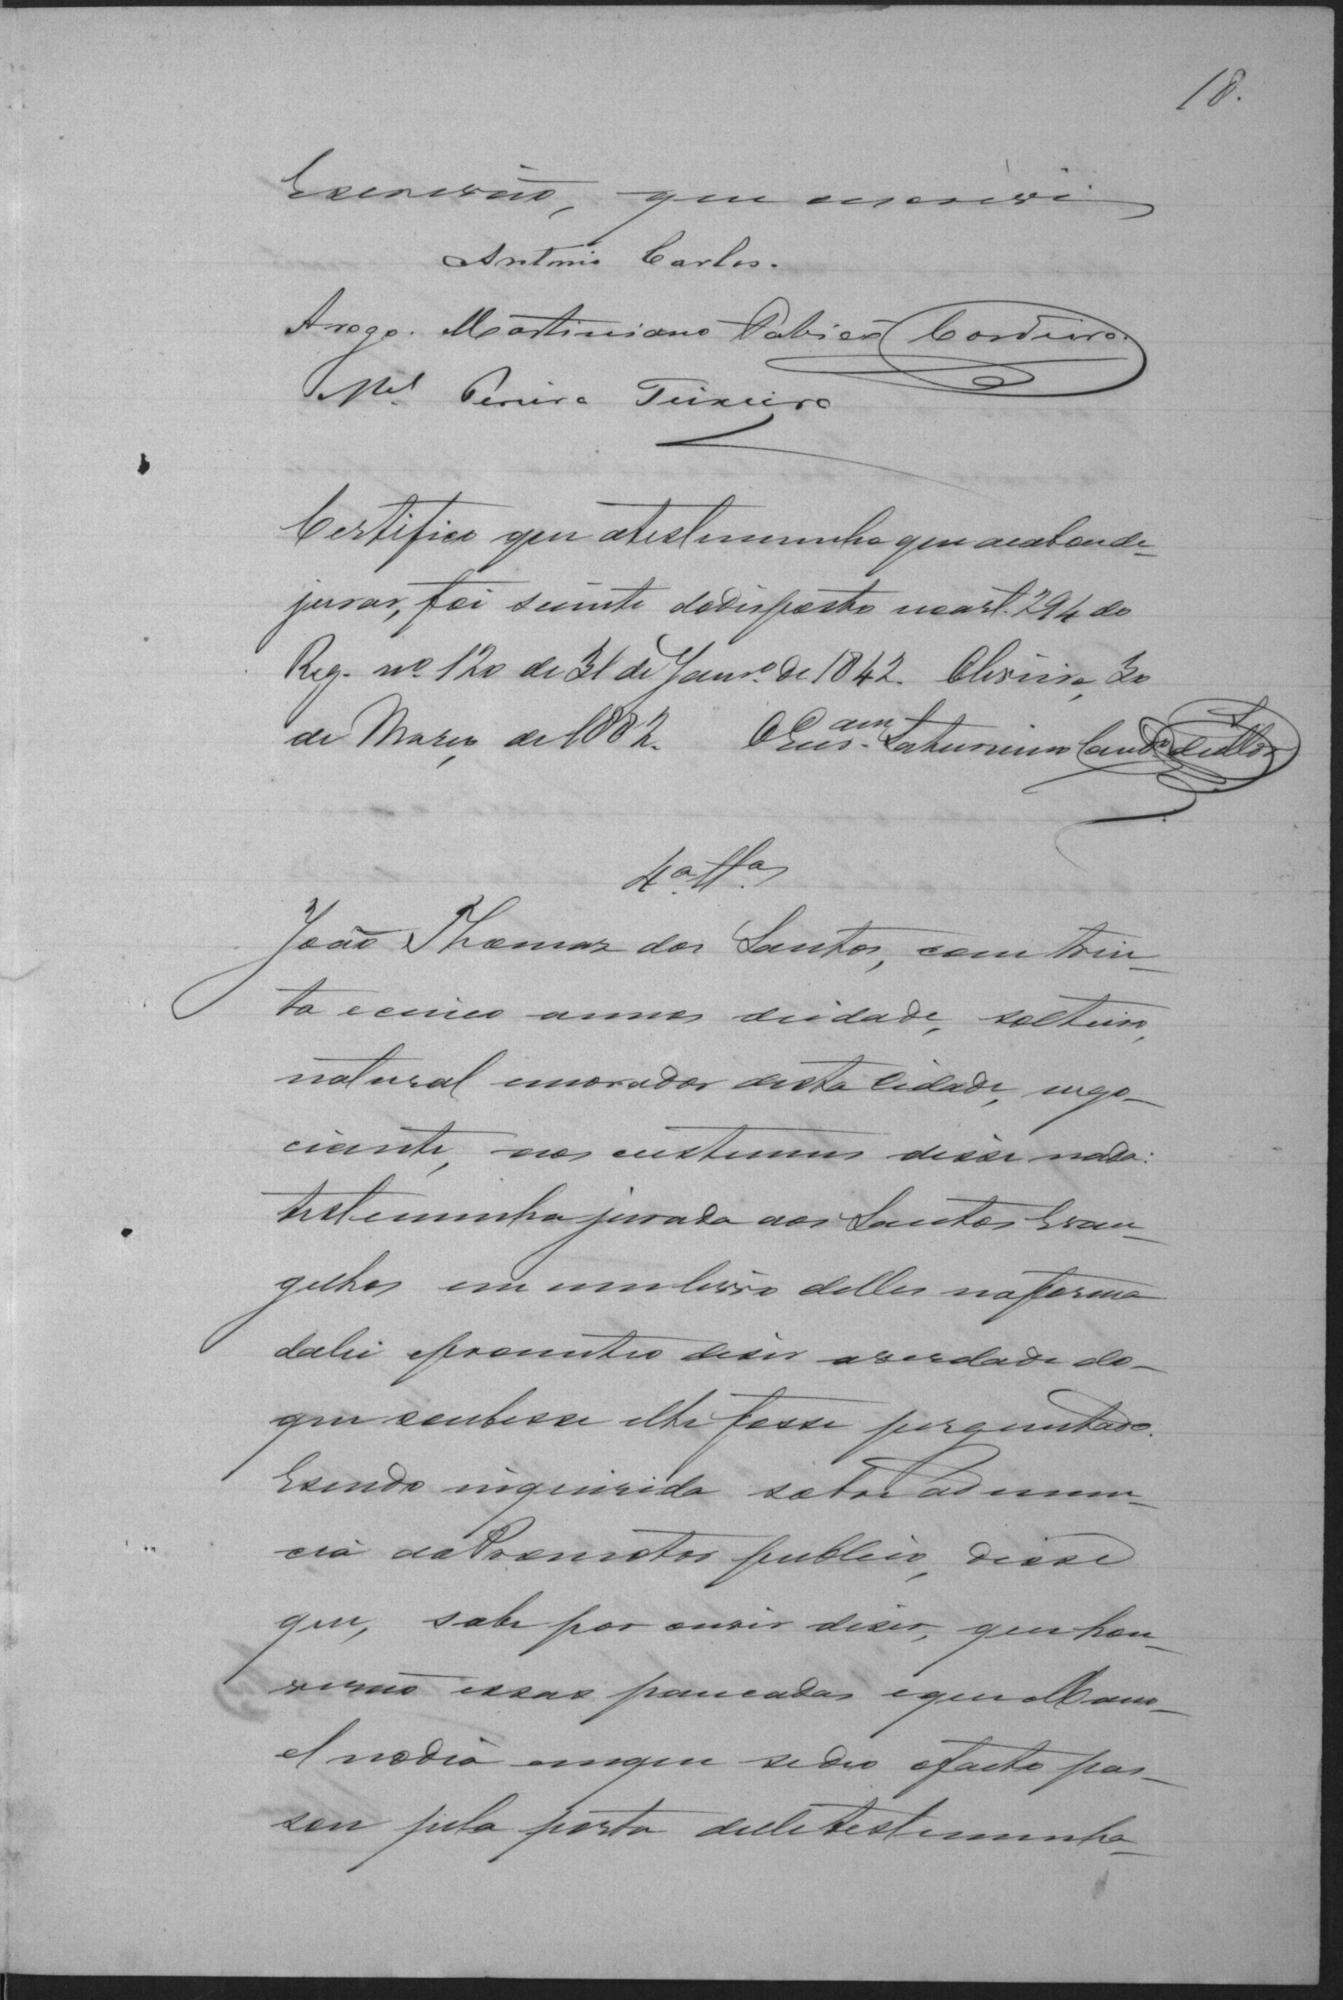 18.
Escrivão, que escrevi
Antonio Carlos.
Arogo. Martiniano Cordeiro.
Mel. Pereira Teixeira
Certifico que atestemunha que acabou de
jurar, foi sciente dodisposto noart. 294 do
Reg. nº 120 de 31 de Janrº. de 1842. Oliveira, 30
de Março, de 1882. O Escrivam Saturnino
4ª. Tª.
João Thomaz dos Santos, com trin-
ta ecinco annos deidade, solteiro,
natural emorador desta Cidade, nego-
ciante, aos custumes disse nada:
testemunha jurada aos Santos Evan-
gelhos em um livro delles naforma
dalei eprometteo diser averdade do-
que soubesse elhe fosse perguntado.
Esendo inquirida sobre adenun-
cia doPromotor publico, disse
que, sabe por ouvir diser, que hou-
verão essas pancadas eque Mano-
el nodia emque sedeo ofacto pas-
sou pela porta delletestemunha